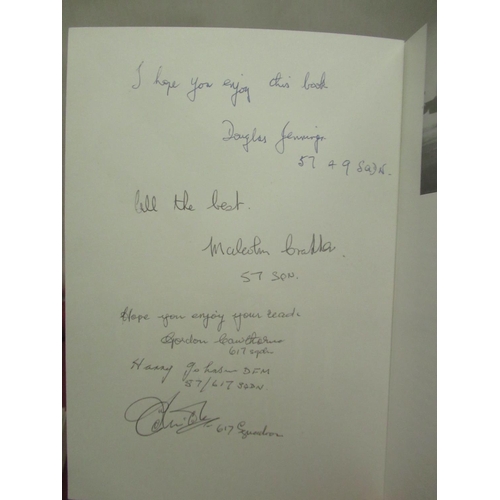 I hope you enjoy this book
Douglas Jennings
57 & 9 SQDN.
All the best.
Malcolm
57 SQN.
Hope you enjoy your read.
Gordon
617 sqdn
Harry Johnson DFM
57/617 SQDN
617 Squadron